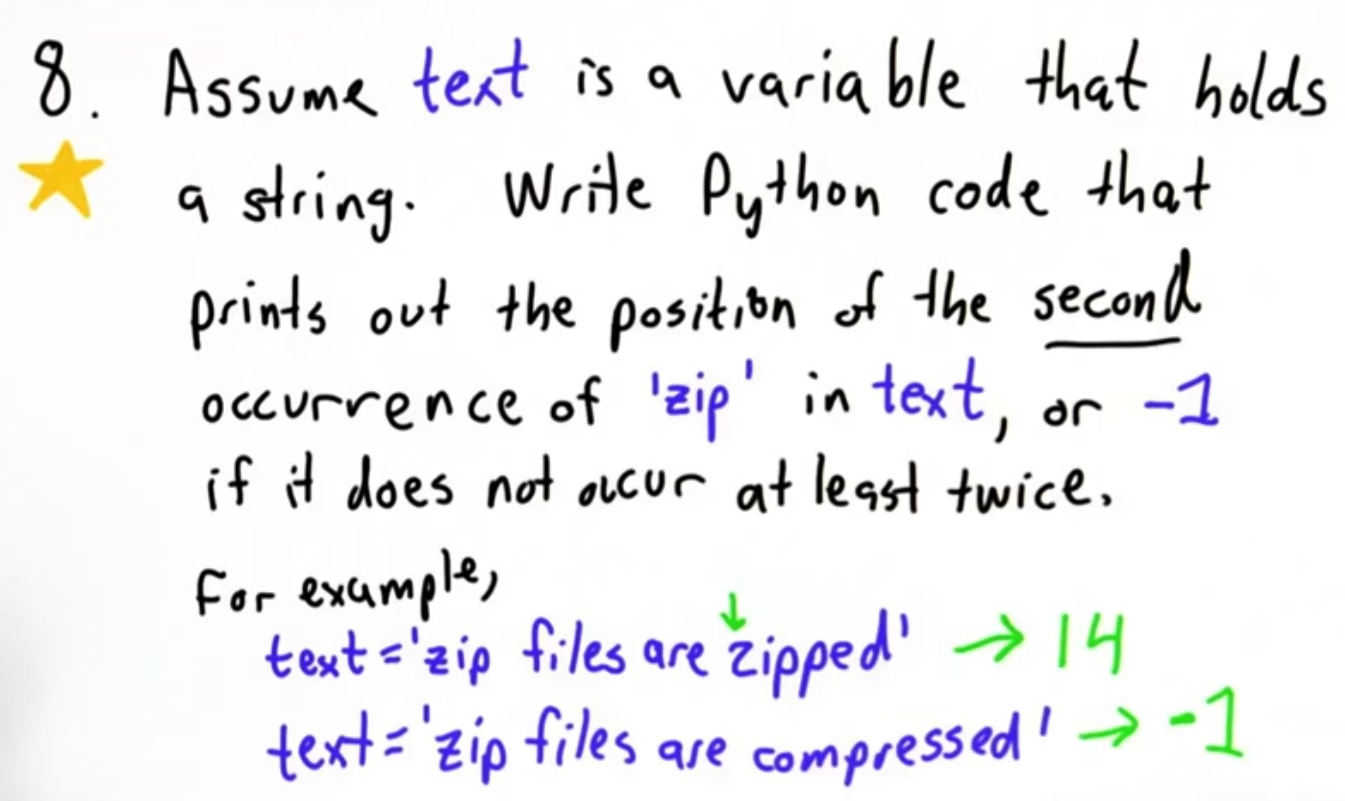 8. Assume text is a variable that holds
a string. Write Python code that
prints out the position of the second
occurrence of 'zip' in text, or -1
if it does not occur at least twice.
For example,
text = 'zip files are zipped' → 14
text = 'zip files are compressed' → -1